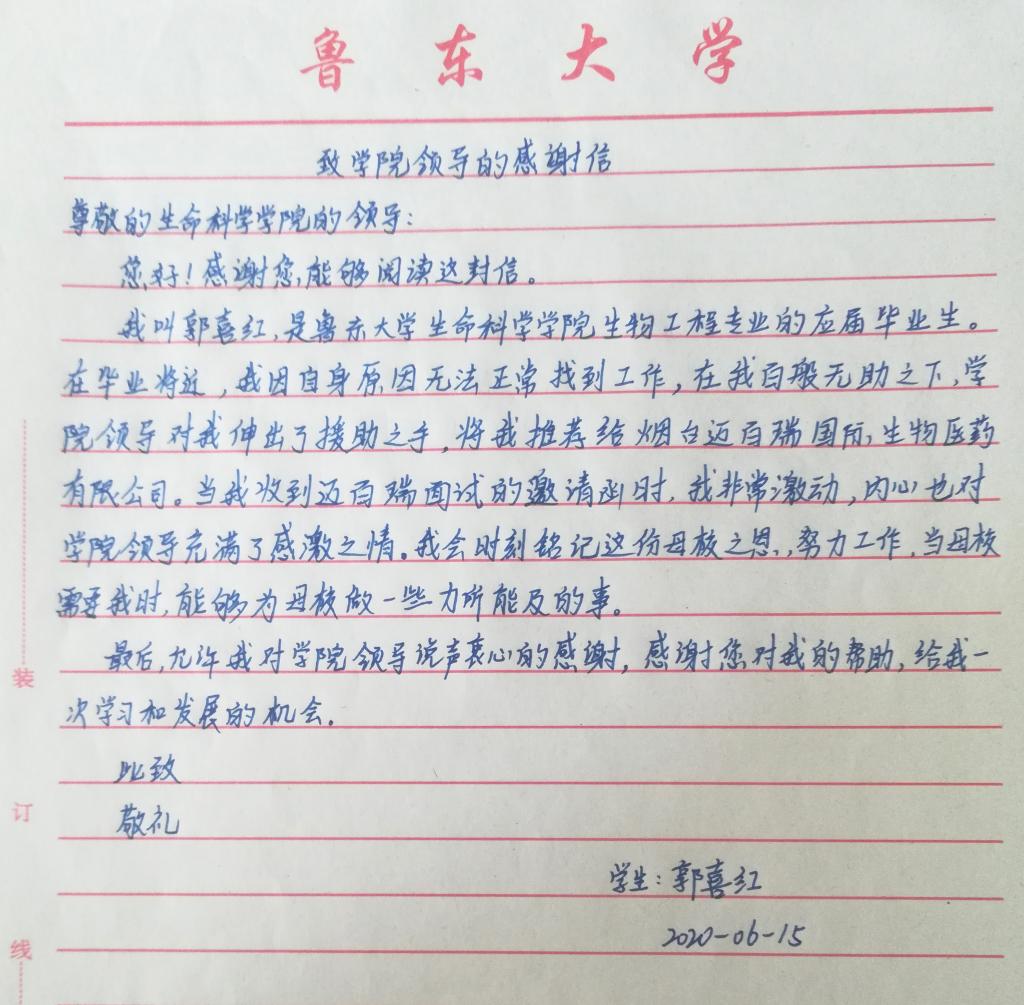 鲁东大学
致学院领导的感谢信
尊敬的生命科学学院的领导：
您好！感谢您能够阅读这封信。
我叫郭喜红，是鲁东大学生命科学学院生物工程专业的应届毕业生。
在毕业将近，我因自身原因无法正常找到工作，在我百般无助之下，学
院领导对我伸出了援助之手，将我推荐给烟台迈百瑞国际生物医药
有限公司。当我收到迈百瑞面试的邀请函时，我非常激动，内心也对
学院领导充满了感激之情。我会时刻铭记这份母校之恩，努力工作，当母校
需要我时，能够为母校做一些力所能及的事。
最后，允许我对学院领导说声衷心的感谢，感谢您对我的帮助，给我一
次学习和发展的机会。
此致
敬礼
学生：郭喜红
2020-06-15
装
订
线